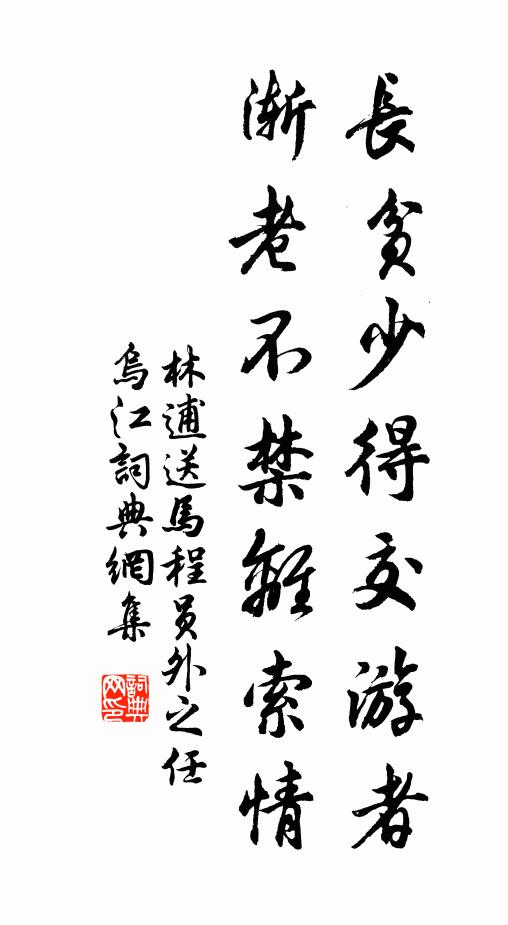 長貧少得交游者
漸老不禁離索情
林逋送馬程員外之任
烏江詞典網集
詞典
网印